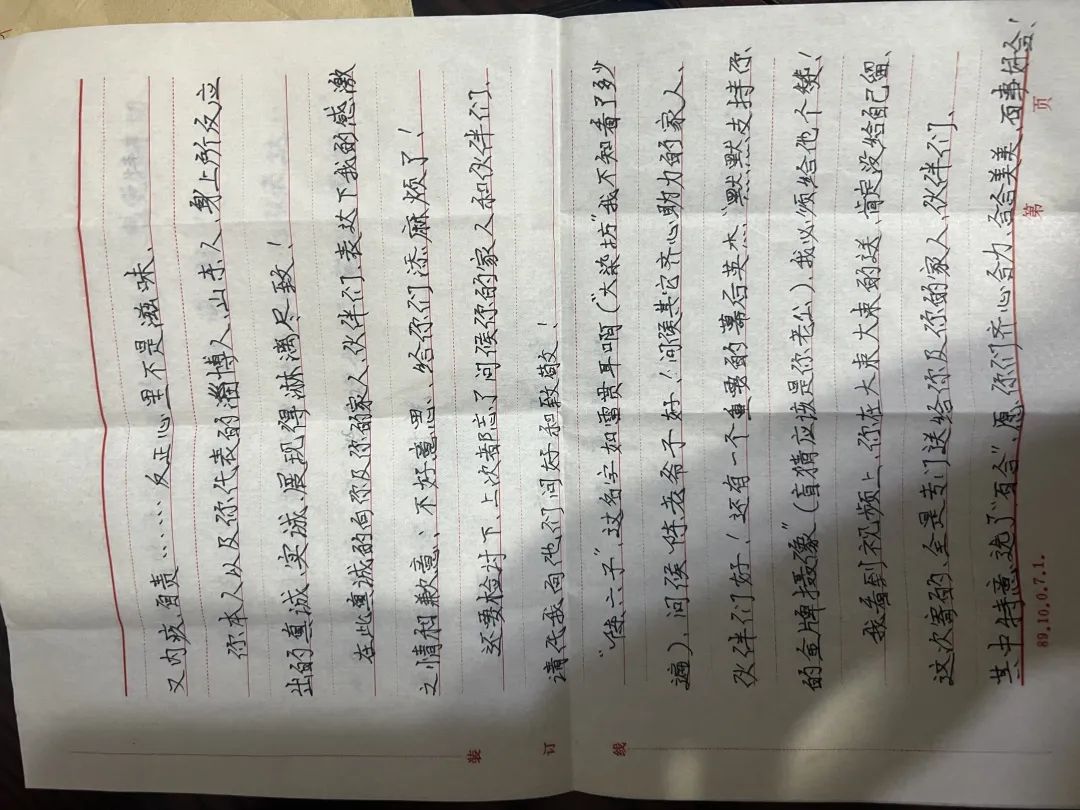 又内疚自责……反正心里不是滋味、
你本人以及你代表的淄博人、山东人、身上所反应
出的真诚、实诚、展现得淋漓尽致！
在此真诚的向你及你的家人、伙伴们、表达下我的感激
之情和歉意、不好意思、给你们添麻烦了！
还要检讨下、上次都忘了问候你的家人和伙伴们、
请代我向他们问好和致敬！
“陈六子”、这名字如雷贯耳啊（“大染坊”我不知看了多少
遍）、问候“陈老爷子好、！问候其它齐心助力的家人、
伙伴们好！还有一个重要的幕后英杰、“默默支持你
的金牌摄像”（盲猜应该是你老公）、我必须给他个赞！
我看到视频上、你在大束大束的送、肯定没给自己留、
这次寄的、全是专门送给你及你的家人、伙伴们、
其中特意选了“百合”、愿、你们齐心合力、合合美美、百事好合！
第 页
89.10.0.7.1.
装 订 线